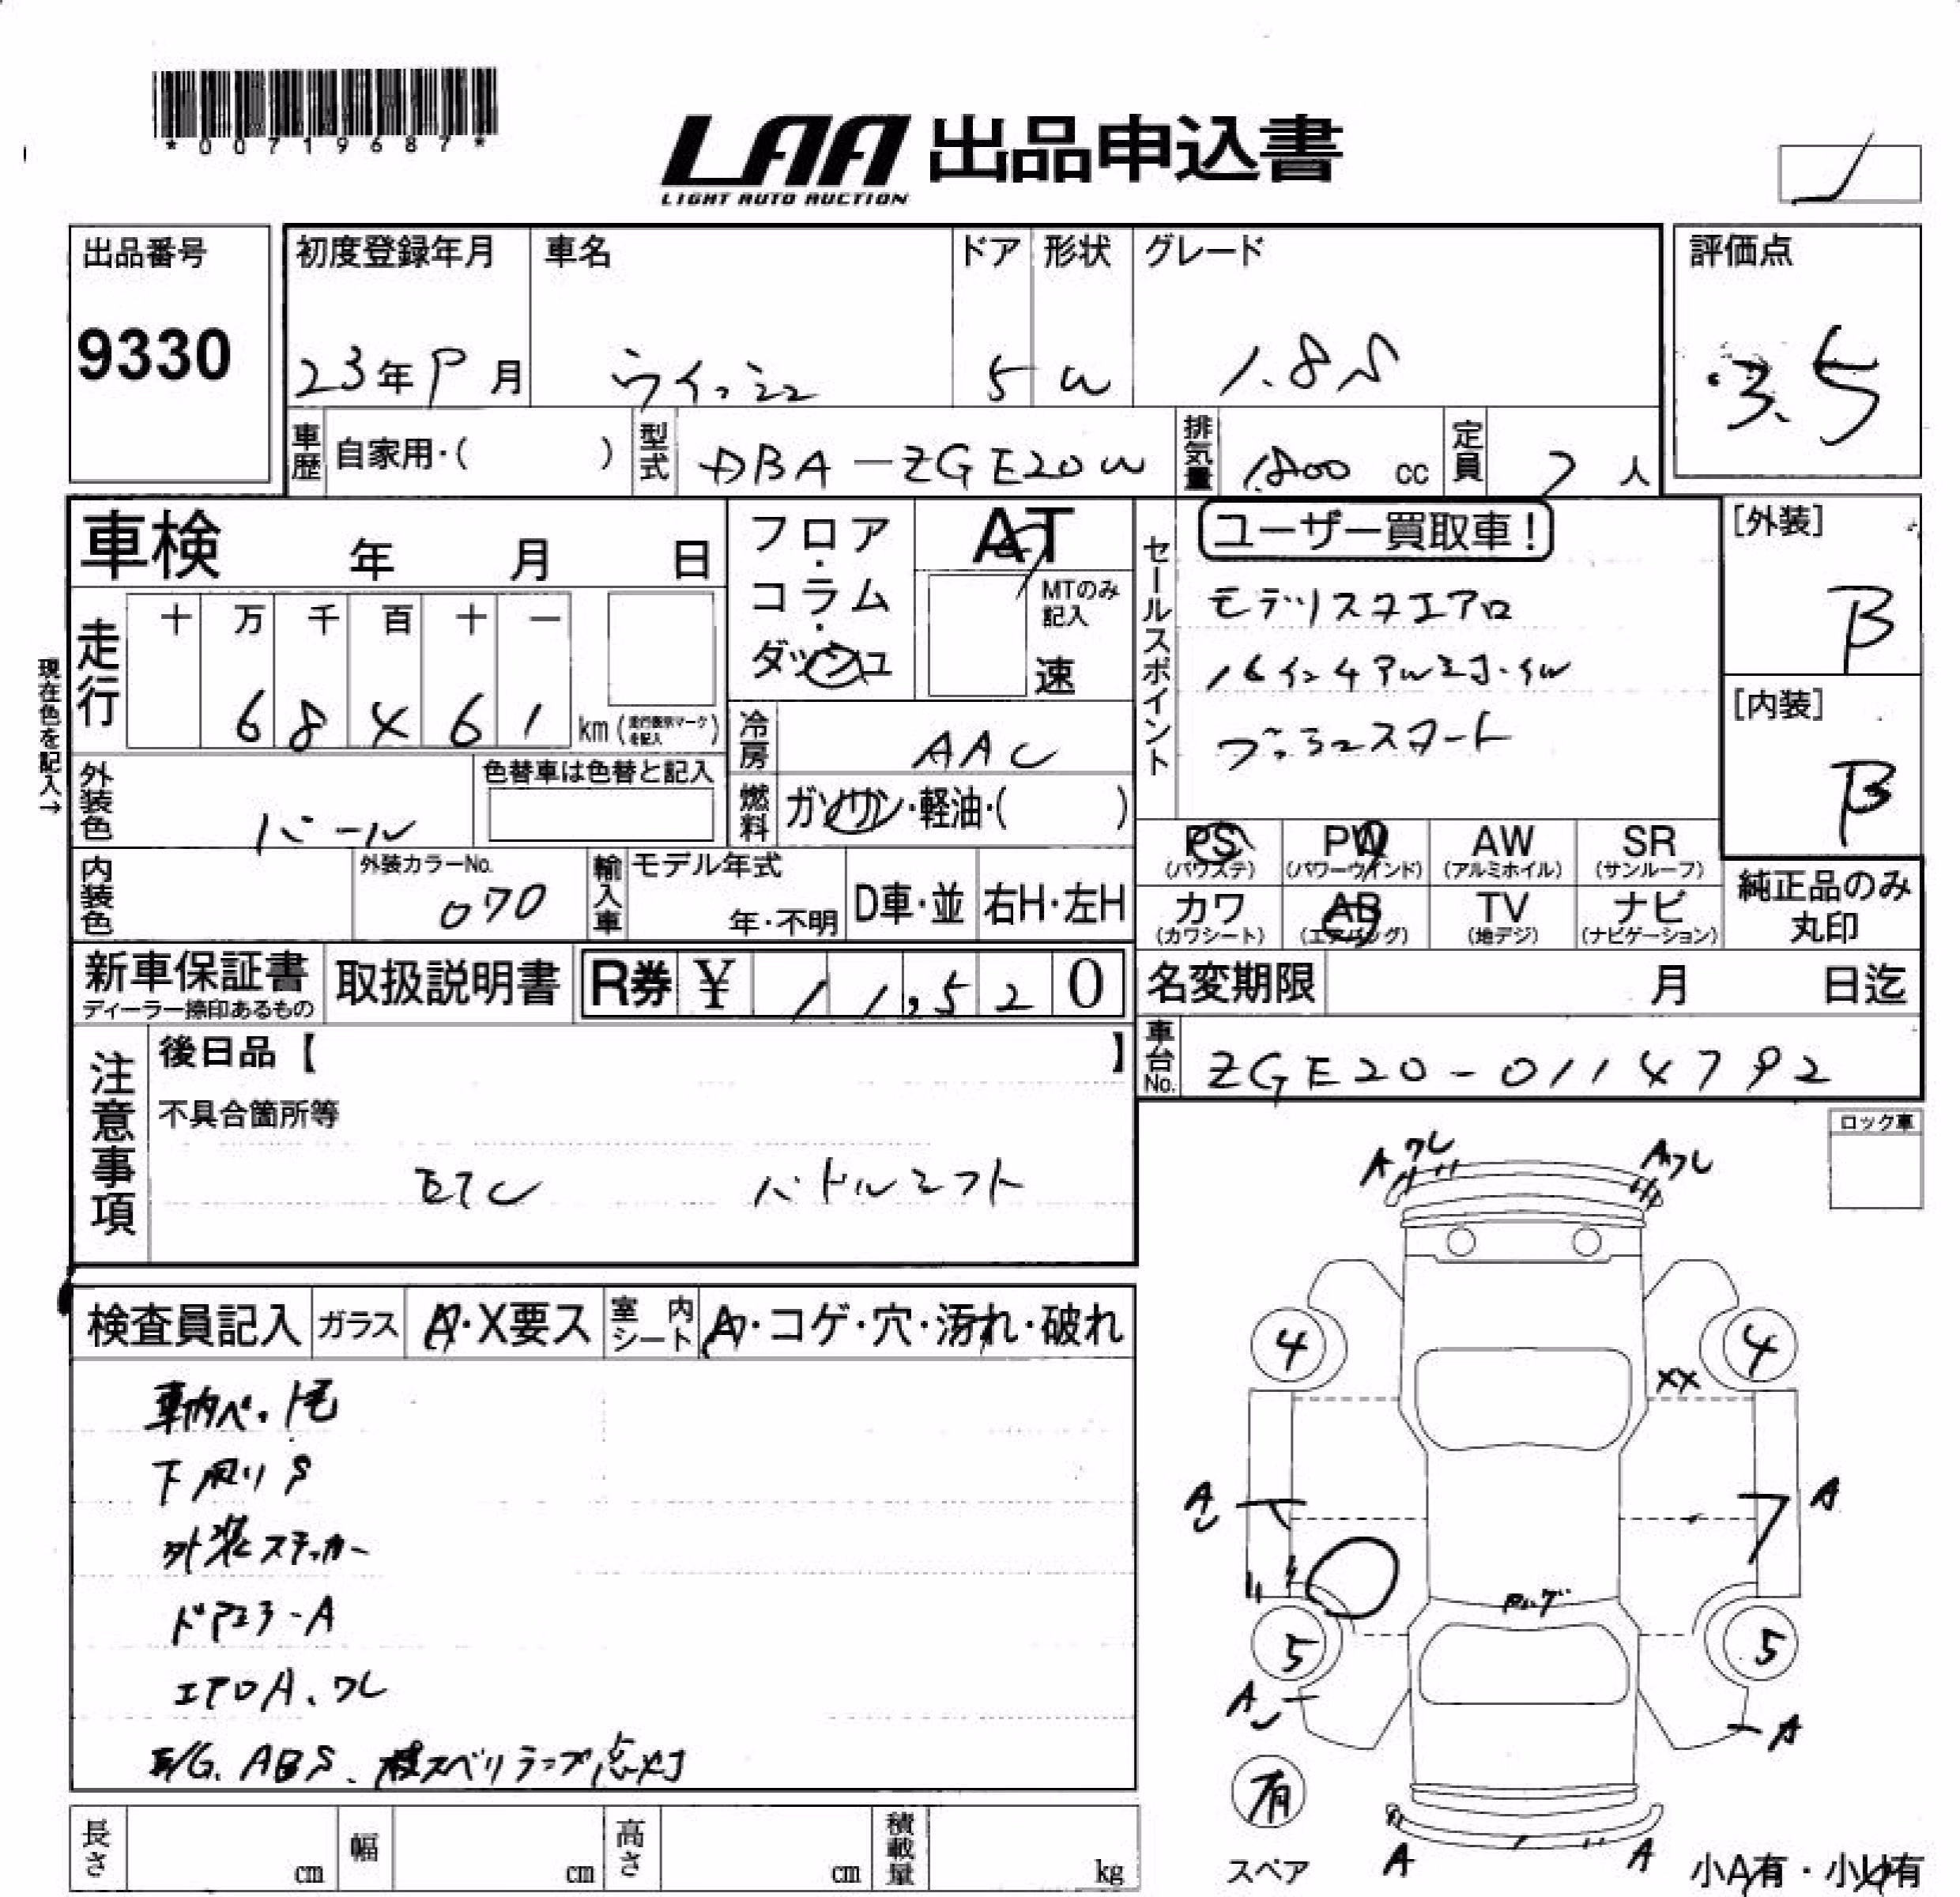 *00719687*
LAA 出品申込書
LIGHT AUTO AUCTION
出品番号
9330
初度登録年月 車名 ドア 形状 グレード
23年9月 ウィッシュ 5 W 1.8S
評価点
3.5
車歴 自家用・( ) 型式 DBA-ZGE20W 排気量 1800 cc 定員 7人
車検 年 月 日
フロア・コラム・ダッシュ
AT
MTのみ記入
速
セールスポイント
ユーザー買取車!
モデリスタエアロ
16インチアルミホイル
プッシュスタート
[外装]
B
[内装]
B
現在色を記入→
走行 十 万 千 百 十 一
68461 km (走行表示マークを記入)
冷房 AAC
燃料 ガソリン・軽油・( )
外装色 パール
色替車は色替と記入
内装色
外装カラーNo.
070
輸入車 モデル年式
年・不明 D車・並 右H・左H
PS (パワステ) PW (パワーウインド) AW (アルミホイル) SR (サンルーフ)
カワ (カワシート) AB (エアバッグ) TV (地デジ) ナビ (ナビゲーション)
純正品のみ丸印
新車保証書 ディーラー捺印あるもの
取扱説明書
R券 ¥ 11,520
名変期限 月 日迄
車台No. ZGE20-0114792
注意事項
後日品【 】
不具合箇所等
ETC パドルシフト
ロック車
検査員記入 ガラス A・X要ス 室内シート A・コゲ・穴・汚れ・破れ
車内ペット毛
下廻りS
外装ステッカー
ドアミラーA
エアロA、ワレ
E/G、ABS、横スベリランプ点灯
Aワレ Aワレ
4 4
XX
A A
ロング
5 5
A A
有
スペア
A A
小A有・小U有
長さ cm 幅 cm 高さ cm 積載量 kg